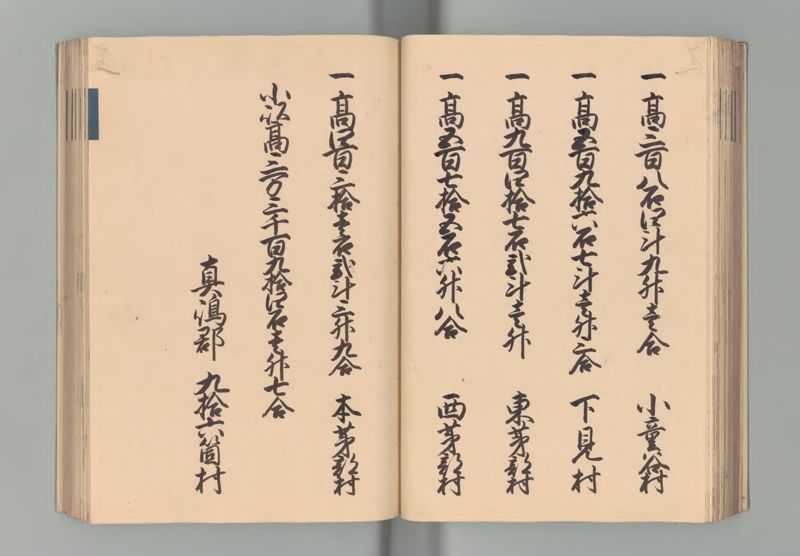 一高三百八石四斗九升壱合 小童谷村
一高五百九拾六石七斗壱升三合 下見村
一高九百四拾七石弐斗壱升 東茅部村
一高五百七拾五石六升八合 西茅部村
一高四百三拾壱石弐斗三升九合 本茅部村
小以高三万三千百九拾四石壱升七合
真嶋郡 九拾六箇村